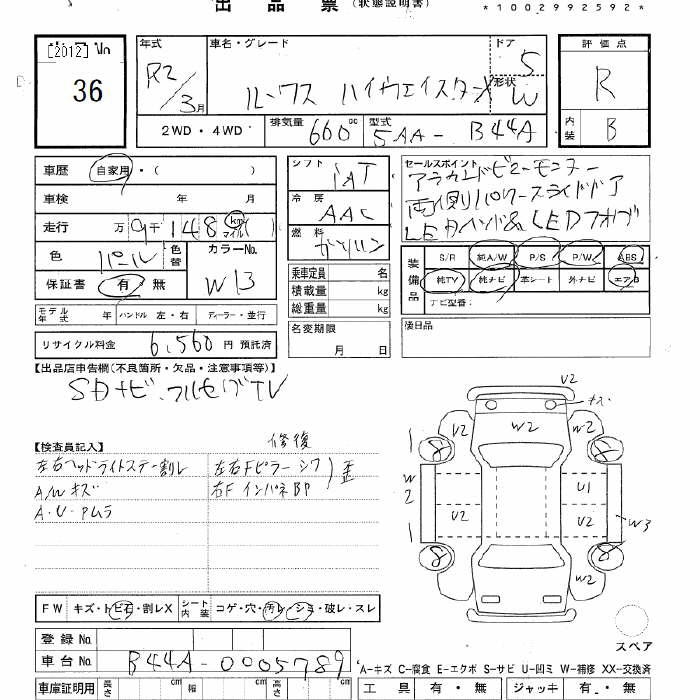 出品票 (状態説明書)
*1002992592*
[2012] No
36
年式
R2/3月
車名・グレード
ルークス ハイウェイスターX
ドア
5
形状
W
評価点
R
内装
B
2WD・4WD
排気量
660 cc
型式
5AA-B44A
車歴
自家用・( )
車検 年 月
走行 万 9千148 km マイル( )
色
パール
色替
カラーNo.
W13
保証書 有・無
モデル年式 年
ハンドル 左・右
ディーラー・並行
リサイクル料金 6,560円 預託済
シフト
IAT
冷房
AAC
燃料
ガソリン
乗車定員 名
積載量 kg
総重量 kg
名変期限
月 日
セールスポイント
アラウンドビューモニター
両側パワースライドドア
LEDフォグ
装備品
S/R 純A/W P/S P/W ABS
純TV 純ナビ 革シート 外ナビ エアB
ナビ型番:
後日品
【出品店申告欄(不良箇所・欠品・注意事項等)】
SDナビ・フルセグTV
【検査員記入】
修復
左右ヘッドライトステー割レ
左右Fピラー シワ 歪
A/W キズ
右F インパネBP
A・U・Pムラ
U2
キズ
W2
U2
W2
W2
U1
U2
U2
W3
W2
FW キズ・トビ石・割レX
シート内装 コゲ・穴・汚レ・シミ・破レ・スレ
スペア
登録No.
車台No. B44A-0005789
A-キズ C-腐食 E-エクボ S-サビ U-凹ミ W-補修 XX-交換済
車庫証明用 長さ cm 幅 cm 高さ cm
工具 有・無
ジャッキ 有・無